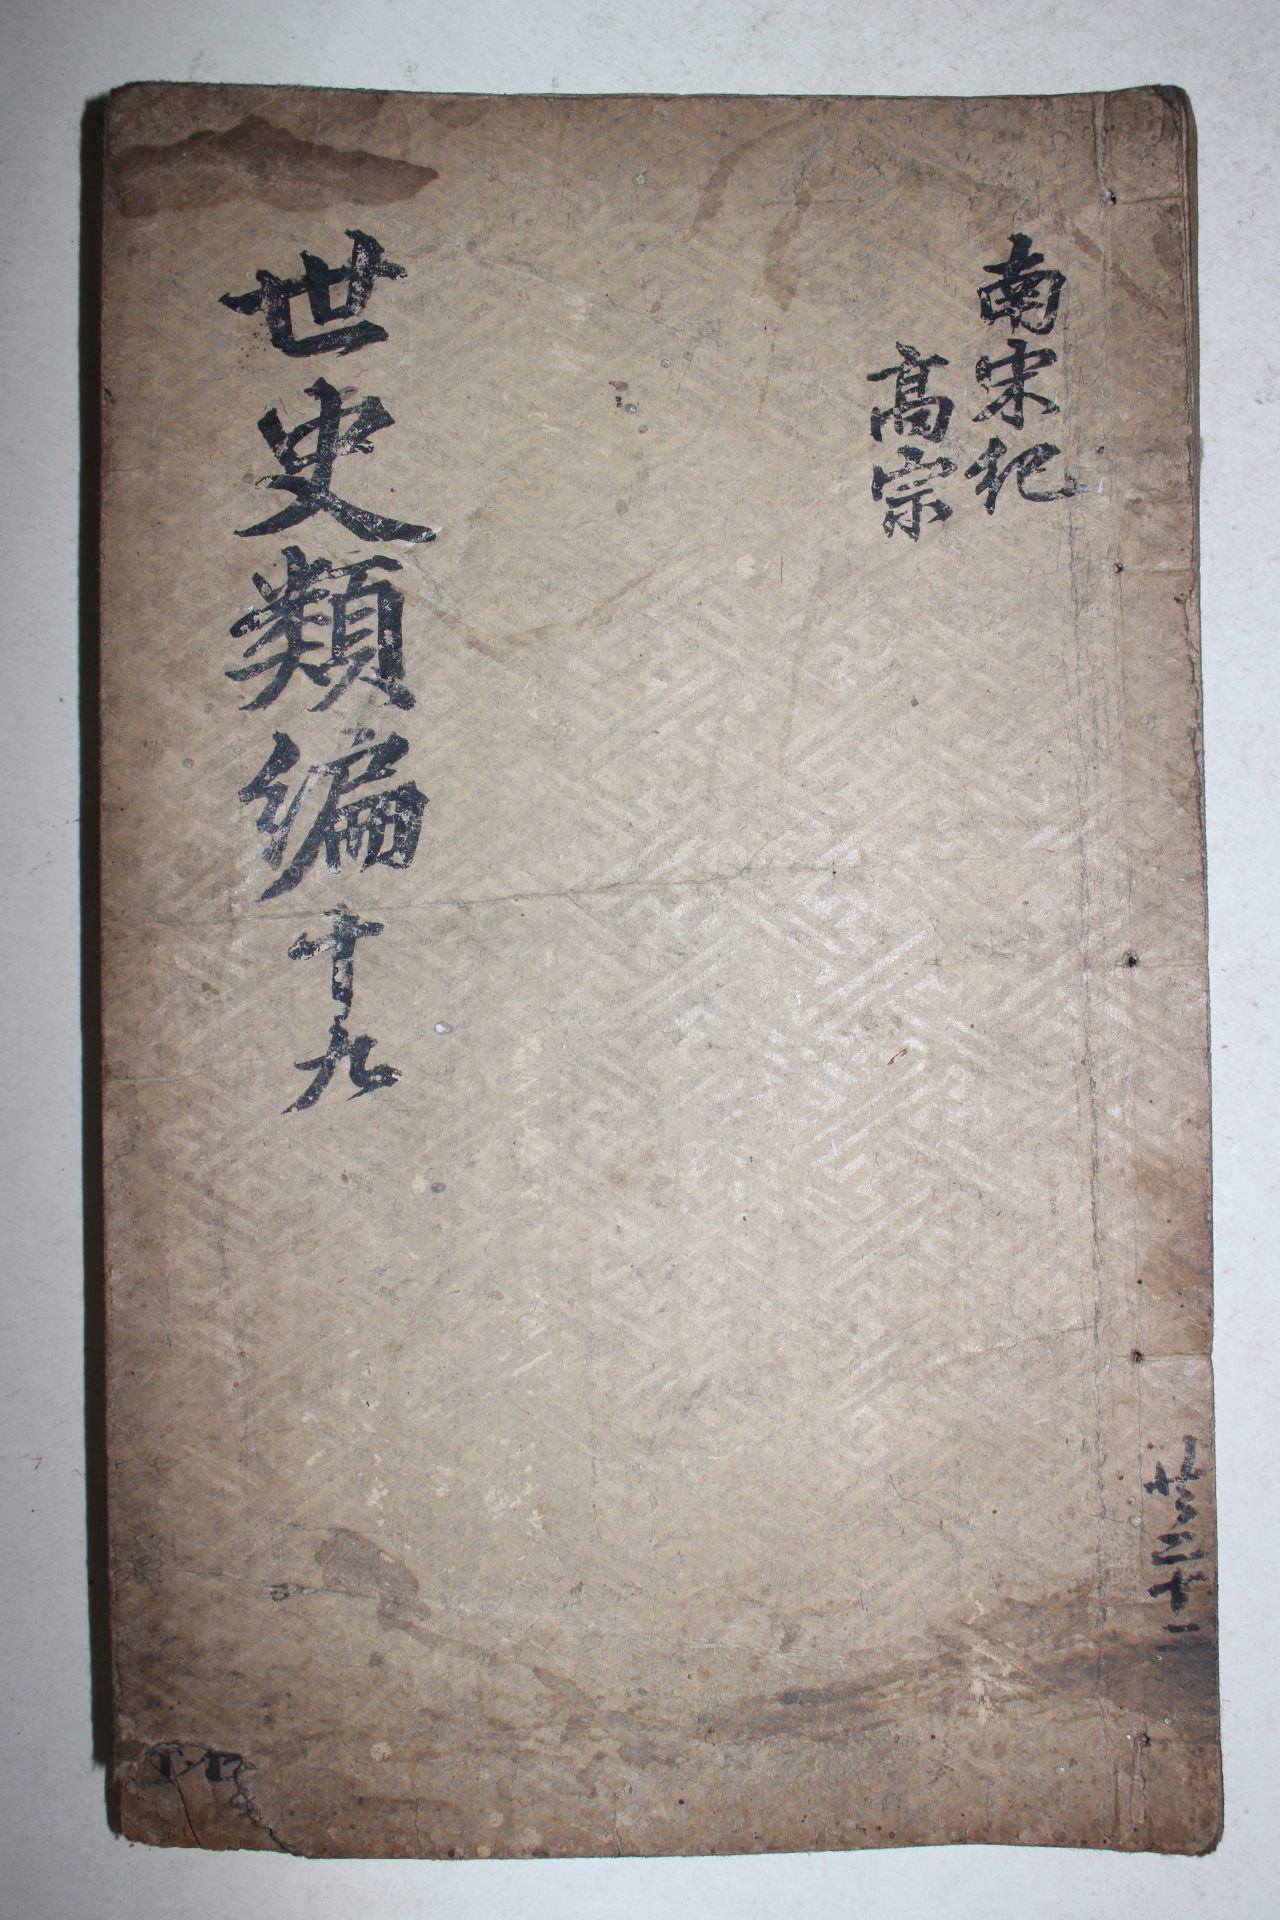 南宋紀
高宗
世史類編十九
共二十二